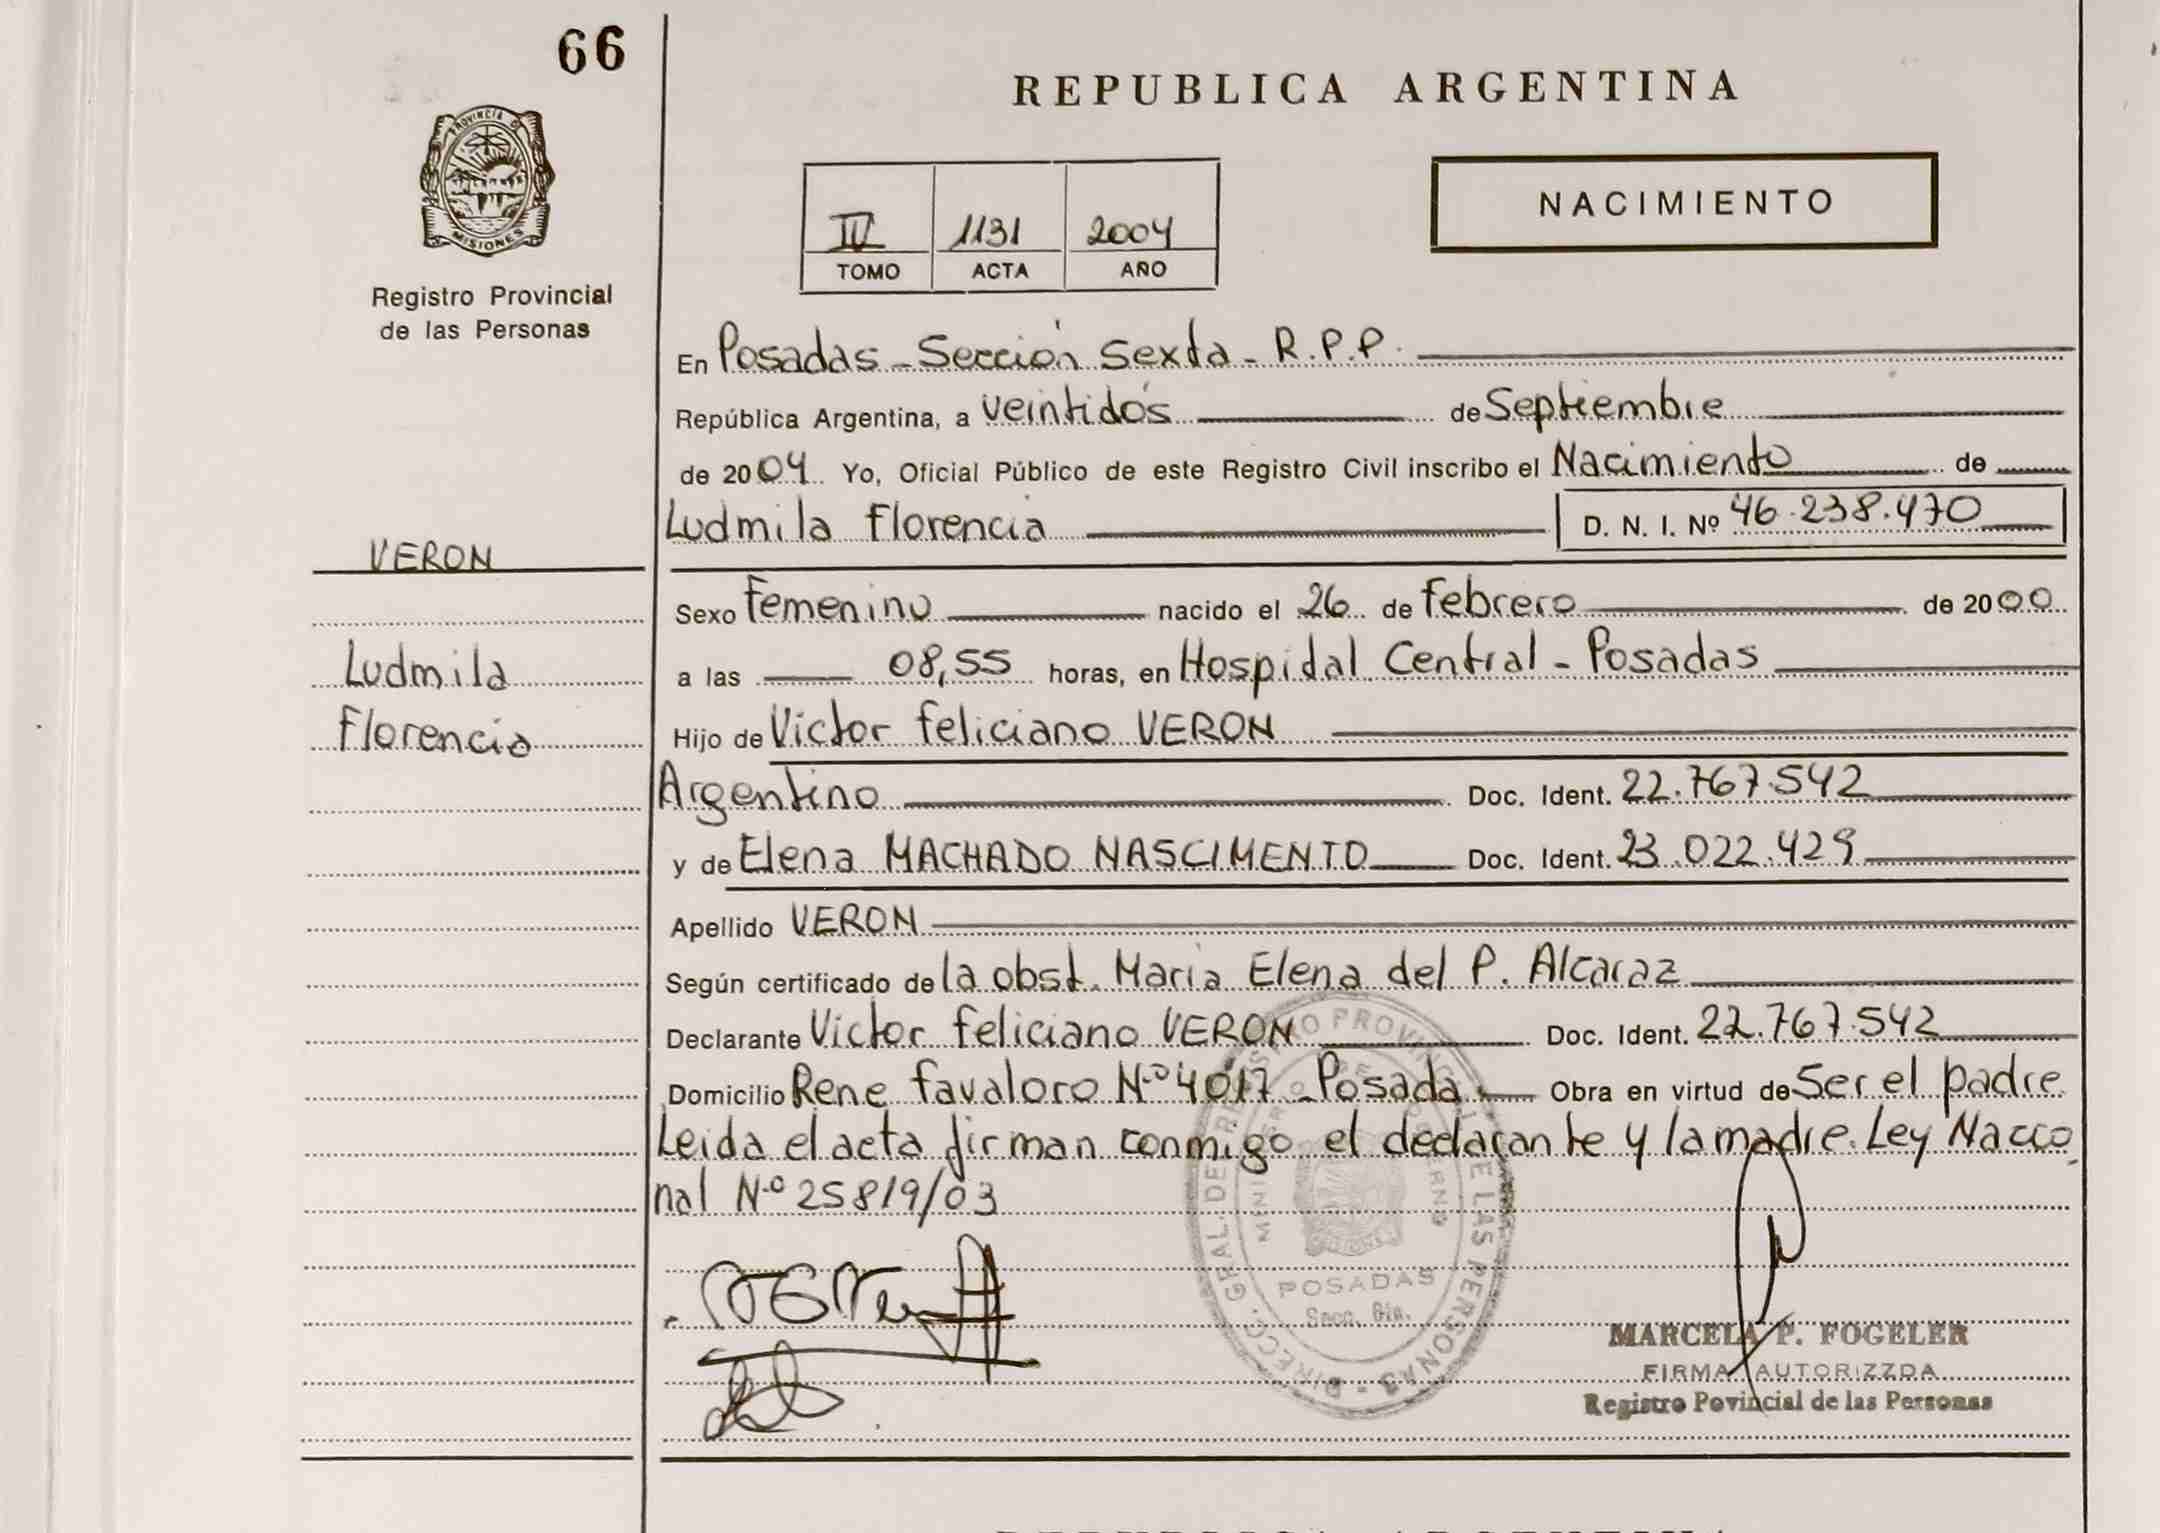 66
REPUBLICA ARGENTINA
PROVINCIA D
MISIONES
Registro Provincial
de las Personas
IV 1131 2004
TOMO ACTA AÑO
NACIMIENTO
En Posadas - Sección Sexta - R.P.P.
República Argentina, a veintidós de Septiembre
de 2004 Yo, Oficial Público de este Registro Civil inscribo el Nacimiento de
Ludmila Florencia D. N. I. Nº 46.238.470
VERON
Ludmila
Florencia
Sexo Femenino nacido el 26 de Febrero de 2000
a las 08,55 horas, en Hospidal Central - Posadas
Hijo de Victor Feliciano VERON
Argentino Doc. Ident. 22.767.542
y de Elena MACHADO NASCIMENTO Doc. Ident. 23.022.429
Apellido VERON
Según certificado de la obst. Maria Elena del P. Alcaraz
Declarante Victor Feliciano VERON Doc. Ident. 22.767.542
Domicilio Rene Favaloro Nº 4017 - Posada Obra en virtud de Ser el padre
Leida el acta firman conmigo el declarante y la madre. Ley Nacio
nal Nº 25819/03
DIRECC. GRAL. DE REGISTRO PROVINCIAL DE LAS PERSONAS
MINISTERIO DE GOBIERNO
MISIONES
POSADAS
MARCELA P. FOGELER
FIRMA AUTORIZZDA
Registro Povincial de las Personas